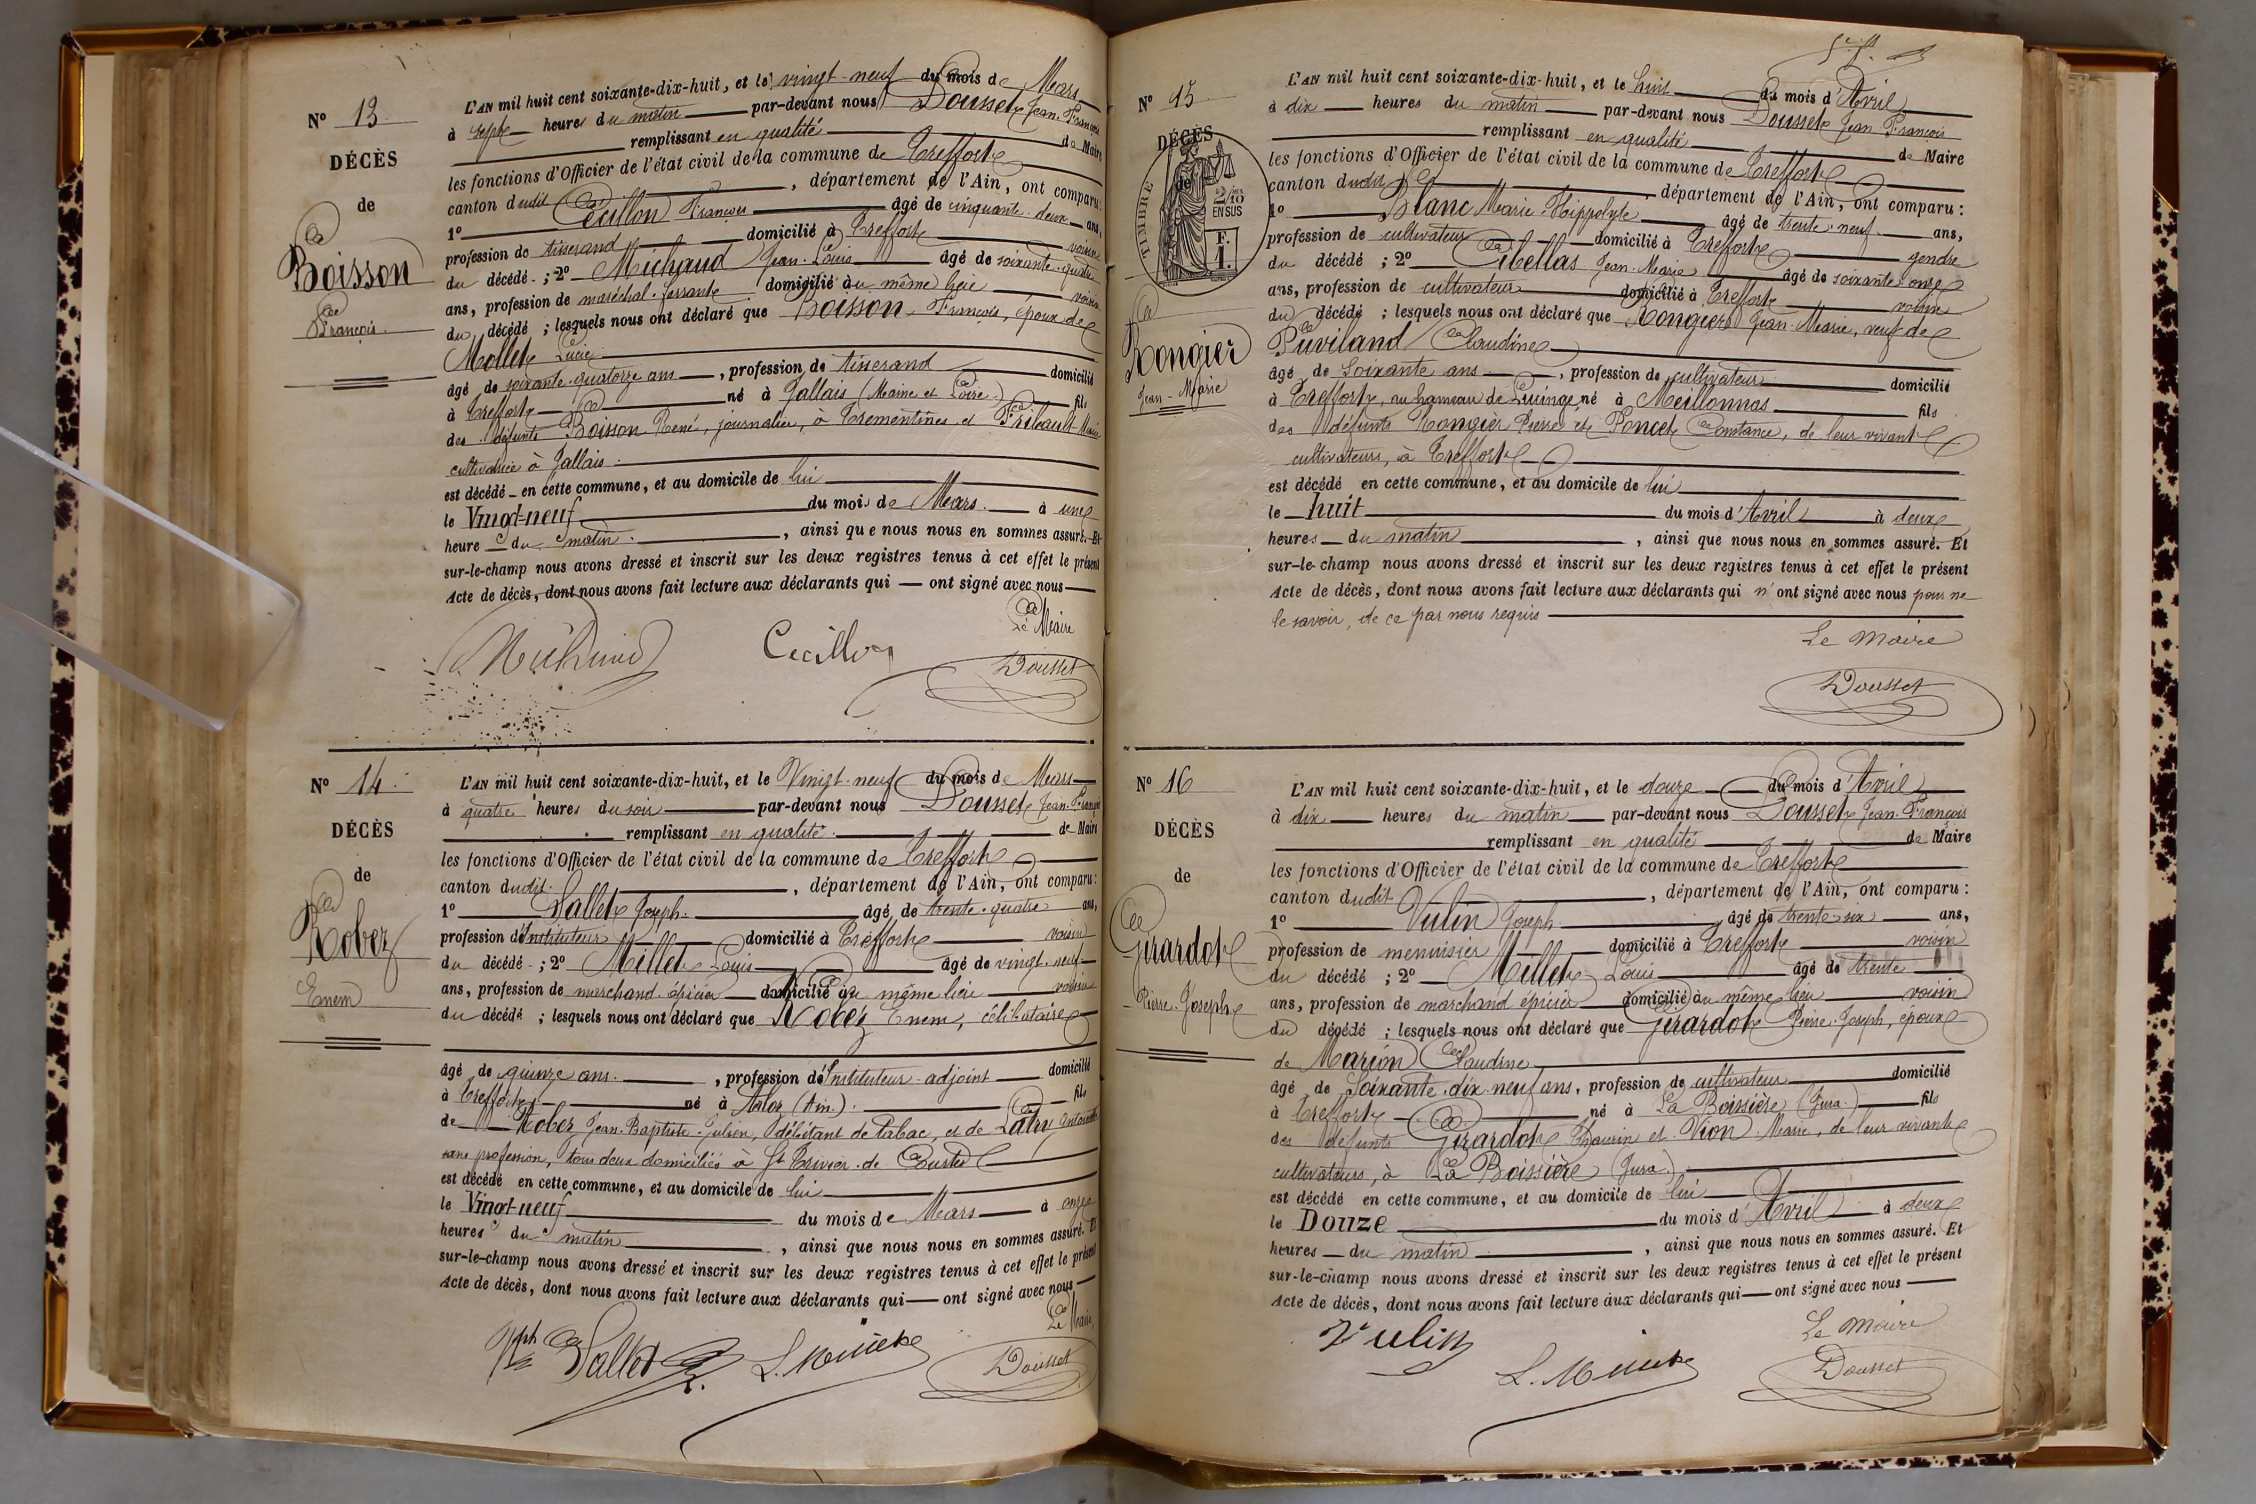 N° 13
DÉCÈS
de
Boisson
François
L'AN mil huit cent soixante-dix-huit, et le vingt-neuf du mois de Mars
à sept heures du matin par-devant nous Dousset Jean-François
remplissant en qualité de Maire
les fonctions d'Officier de l'état civil de la commune de Treffort
canton dudit, département de l'Ain, ont comparu:
1° Cecillon François âgé de cinquante-deux ans,
profession de tisserand domicilié à Treffort voisin
du décédé; 2° Michaud Jean-Louis âgé de soixante-quatre
ans, profession de maréchal-ferrant domicilié au même lieu voisin
du décédé; lesquels nous ont déclaré que Boisson François, époux de
Mollet Lucie
âgé de soixante-quatorze ans, profession de tisserand domicilié
à Treffort né à Jallais (Maine et Loire) fils
des défunts Boisson René, journalier, à Trementines et Marie
cultivatrice à Jallais.
est décédé en cette commune, et au domicile de lui
le Vingt-neuf du mois de Mars à une
heure du matin, ainsi que nous nous en sommes assuré. Et
sur-le-champ nous avons dressé et inscrit sur les deux registres tenus à cet effet le présent
Acte de décès, dont nous avons fait lecture aux déclarants qui — ont signé avec nous
Le Maire
Michaud Cecillon Dousset
N° 14
DÉCÈS
de
Robez
Enem
L'AN mil huit cent soixante-dix-huit, et le Vingt-neuf du mois de Mars
à quatre heures du soir par-devant nous Dousset Jean-François
remplissant en qualité de Maire
les fonctions d'Officier de l'état civil de la commune de Treffort
canton dudit, département de l'Ain, ont comparu:
1° Vallet Joseph âgé de trente-quatre ans,
profession d'Instituteur domicilié à Treffort voisin
du décédé; 2° Millet Louis âgé de vingt-neuf
ans, profession de marchand-épicier domicilié au même lieu voisin
du décédé; lesquels nous ont déclaré que Robez Enem, célibataire
âgé de quinze ans, profession d'Instituteur-adjoint domicilié
à Treffort né à (Ain) fils
de Robez Jean-Baptiste-Julien, débitant de tabac, et de Latry
sans profession, tous deux domiciliés à St Trivier-de-Courtes
est décédé en cette commune, et au domicile de lui
le Vingt-neuf du mois de Mars à onze
heures du matin, ainsi que nous nous en sommes assuré. Et
sur-le-champ nous avons dressé et inscrit sur les deux registres tenus à cet effet le présent
Acte de décès, dont nous avons fait lecture aux déclarants qui — ont signé avec nous
Le Maire,
Jph Vallet L. Millet Dousset
N° 15
DÉCÈS
de
TIMBRE
2/10
EN SUS
F.
1.
Rongier
Jean-Marie
L'AN mil huit cent soixante-dix-huit, et le huit du mois d'Avril
à dix heures du matin par-devant nous Dousset Jean François
remplissant en qualité de Maire
les fonctions d'Officier de l'état civil de la commune de Treffort
canton dudit, département de l'Ain, ont comparu:
1° Blanc Marie-Hippolyte âgé de trente-neuf ans,
profession de cultivateur domicilié à Treffort gendre
du décédé; 2° Cibellas Jean-Marie âgé de soixante-onze
ans, profession de cultivateur domicilié à Treffort voisin
du décédé; lesquels nous ont déclaré que Rongier Jean-Marie, veuf de
Puviland Claudine
âgé de soixante ans, profession de cultivateur domicilié
à Treffort, au hameau de Lucinge né à Meillonnas fils
des défunts Rongier Pierre et Poncet Constance, de leur vivant
cultivateurs, à Treffort
est décédé en cette commune, et au domicile de lui
le huit du mois d'Avril à deux
heures du matin, ainsi que nous nous en sommes assuré. Et
sur-le-champ nous avons dressé et inscrit sur les deux registres tenus à cet effet le présent
Acte de décès, dont nous avons fait lecture aux déclarants qui n'ont signé avec nous pour ne
le savoir, de ce par nous requis
Le Maire
Dousset
N° 16
DÉCÈS
de
Girardot
Pierre-Joseph
L'AN mil huit cent soixante-dix-huit, et le douze du mois d'Avril
à dix heures du matin par-devant nous Dousset Jean-François
remplissant en qualité de Maire
les fonctions d'Officier de l'état civil de la commune de Treffort
canton dudit, département de l'Ain, ont comparu:
1° Vulin Joseph âgé de trente-six ans,
profession de menuisier domicilié à Treffort voisin
du décédé; 2° Millet Louis âgé de trente
ans, profession de marchand épicier domicilié au même lieu voisin
du décédé; lesquels nous ont déclaré que Girardot Pierre-Joseph, époux
de Marion Claudine
âgé de soixante-dix-neuf ans, profession de cultivateur domicilié
à Treffort né à La Boissière (Jura) fils
des défunts Girardot et Vion Marie, de leur vivant
cultivateurs, à La Boissière (Jura)
est décédé en cette commune, et au domicile de lui
le Douze du mois d'Avril à deux
heures du matin, ainsi que nous nous en sommes assuré. Et
sur-le-champ nous avons dressé et inscrit sur les deux registres tenus à cet effet le présent
Acte de décès, dont nous avons fait lecture aux déclarants qui — ont signé avec nous
Le Maire
Vulin L. Millet Dousset